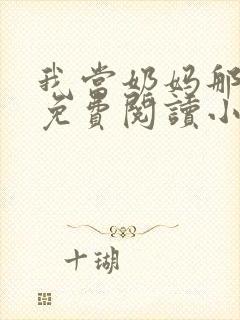 我当奶妈那
免費閱讀小
十瑚